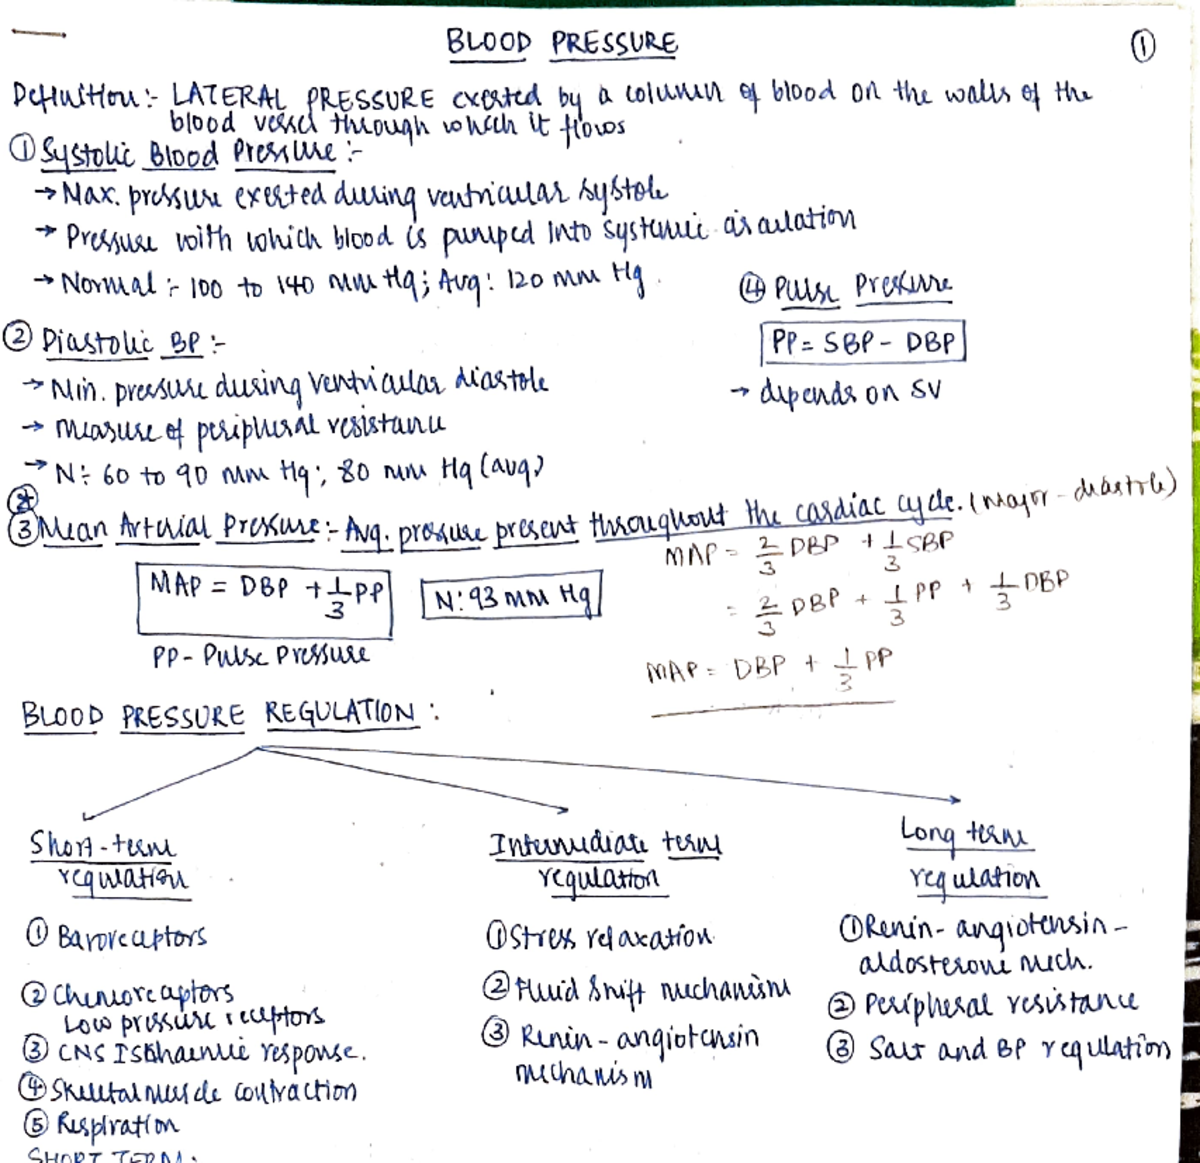 BLOOD PRESSURE
①
Definition :- LATERAL PRESSURE exerted by a column of blood on the walls of the
blood vessel through which it flows
① Systolic Blood Pressure :-
→ Max. pressure exerted during ventricular systole
→ Pressure with which blood is pumped into systemic circulation
→ Normal :- 100 to 140 mm Hg; Avg: 120 mm Hg.
④ Pulse Pressure
PP = SBP - DBP
→ depends on SV
② Diastolic BP :-
→ Min. pressure during ventricular diastole
→ Measure of peripheral resistance
→ N:- 60 to 90 mm Hg; 80 mm Hg (avg)
③ Mean Arterial Pressure :- Avg. pressure present throughout the cardiac cycle. (Major - diastole)
MAP = DBP + 1/3 PP
N: 93 mm Hg
PP - Pulse Pressure
MAP = 2/3 DBP + 1/3 SBP
= 2/3 DBP + 1/3 PP + 1/3 DBP
MAP = DBP + 1/3 PP
BLOOD PRESSURE REGULATION :
Short-term
regulation
① Baroreceptors
② Chemoreceptors
Low pressure receptors
③ CNS Ischaemic response.
④ Skeletal muscle contraction
⑤ Respiration
Intermediate term
regulation
① Stress relaxation
② Fluid Shift mechanism
③ Renin-angiotensin
mechanism
Long term
regulation
① Renin-angiotensin-
aldosterone mech.
② Peripheral resistance
③ Salt and BP regulation
SHORT TERM: